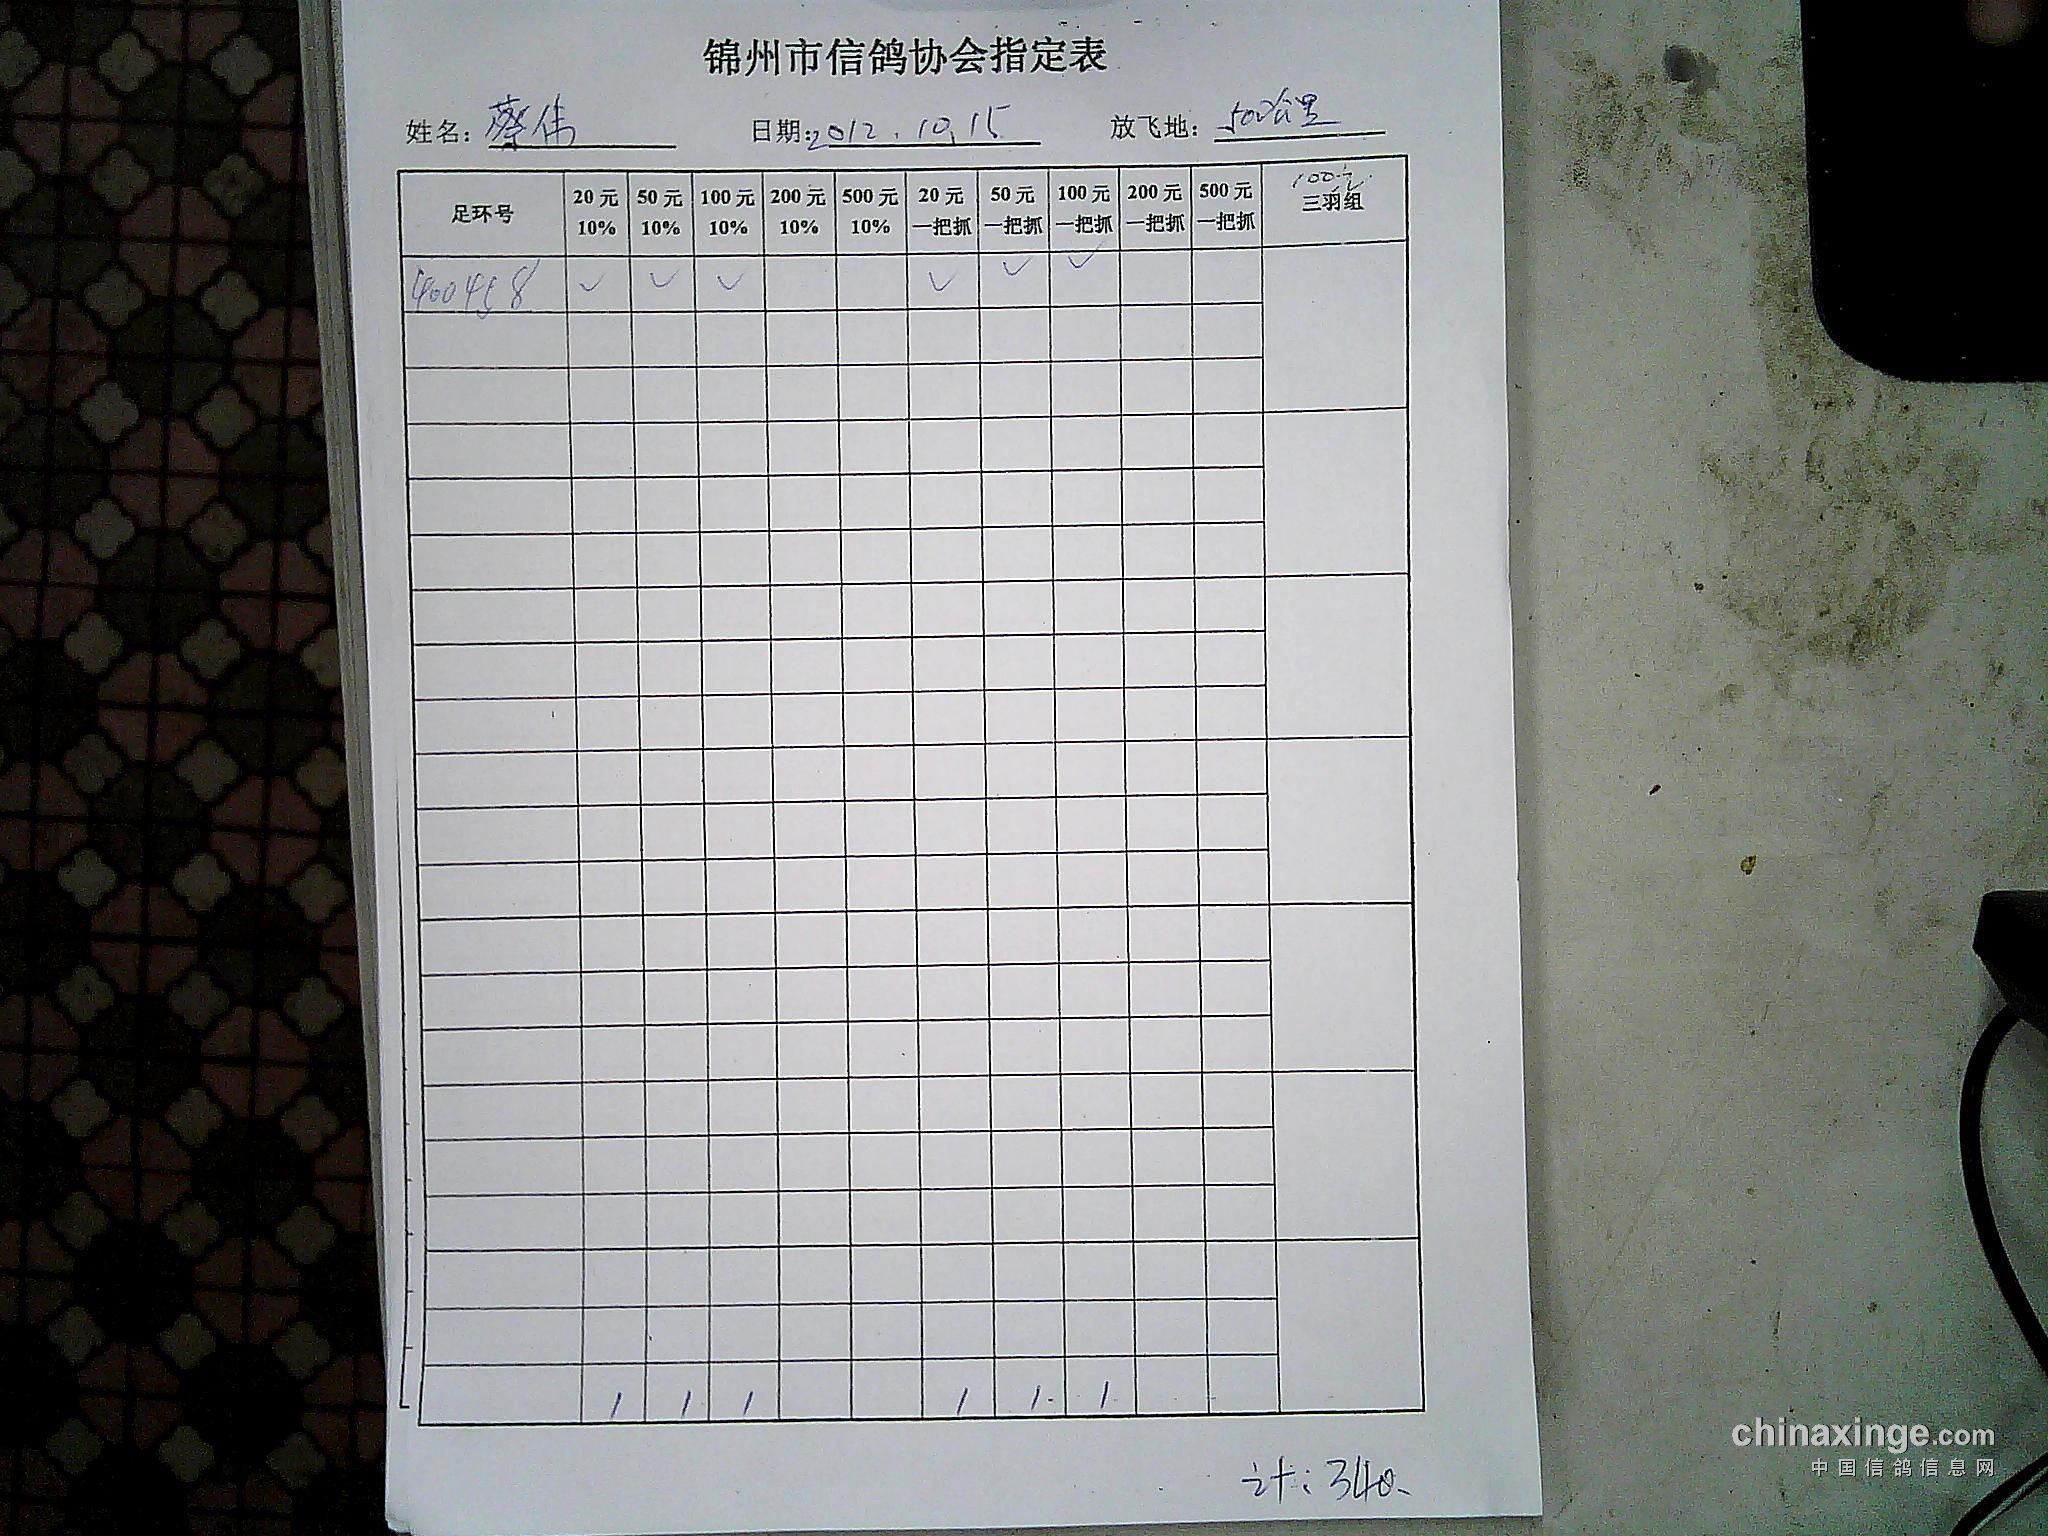 锦州市信鸽协会指定表
姓名：蔡伟 日期：2012.10.15 放飞地：500公里
足环号 20元 10% 50元 10% 100元 10% 200元 10% 500元 10% 20元 一把抓 50元 一把抓 100元 一把抓 200元 一把抓 500元 一把抓 100元 三羽组
400458 ✓ ✓ ✓ ✓ ✓ ✓
1 1 1 1 1 1
计：340
chinaxinge.com
中国信鸽信息网